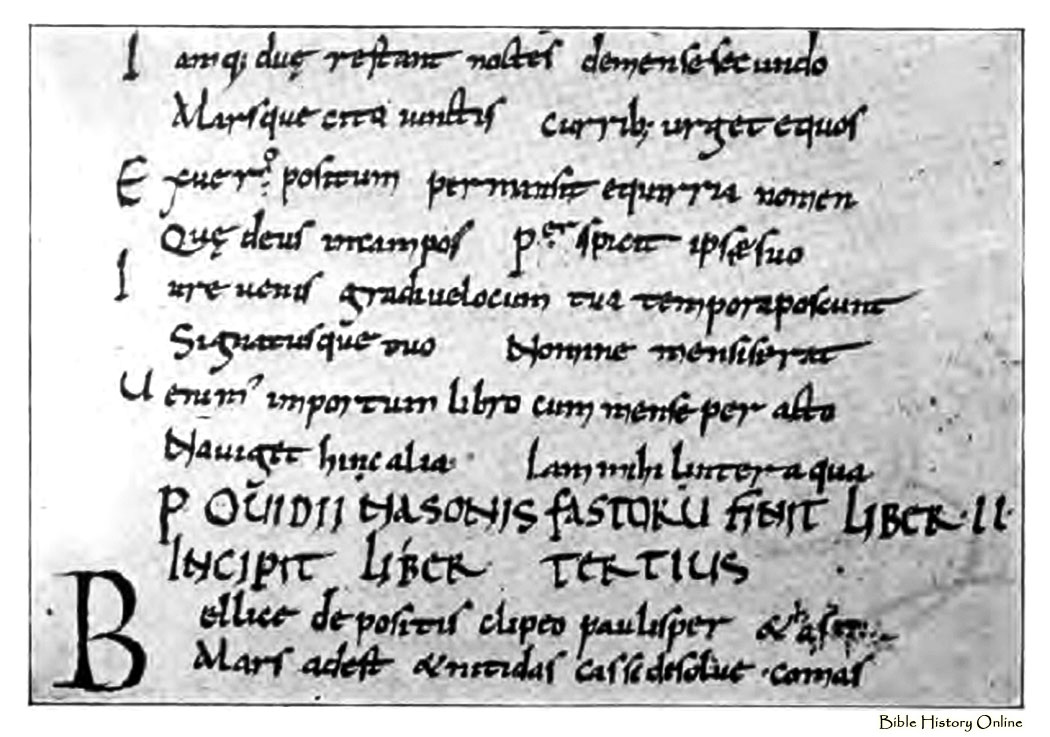 I amq; duę restant noctes de mense secundo
Marsque citos iunctis currib; urget equos
E x uero positum permansit equirria nomen
Quę deus in campos prospicit ipse suo
I ure uenis gradiue locum tua tempora poscunt
Signatusque tuo Nomine mensis erat
U enim' in portum libro cum mense peracto
Nauiget hinc alia Iam mihi linter aqua
P OUIDII NASONIS FASTORU FINIT LIBER II
INCIPIT LIBER TERTIUS
B ellice depositis clipeo paulisper & hasta
Mars ades & nitidas casside solue comas
Bible History Online